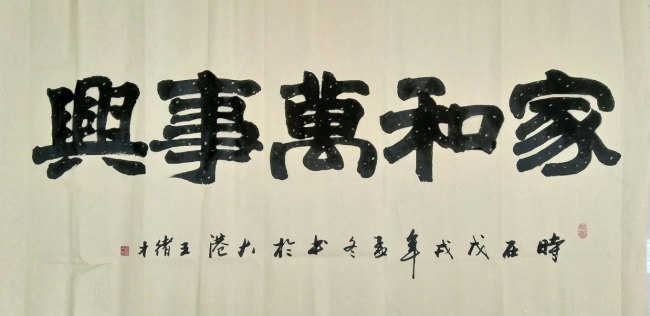 家和萬事興
時在戊戌年孟冬书於大港王緒才